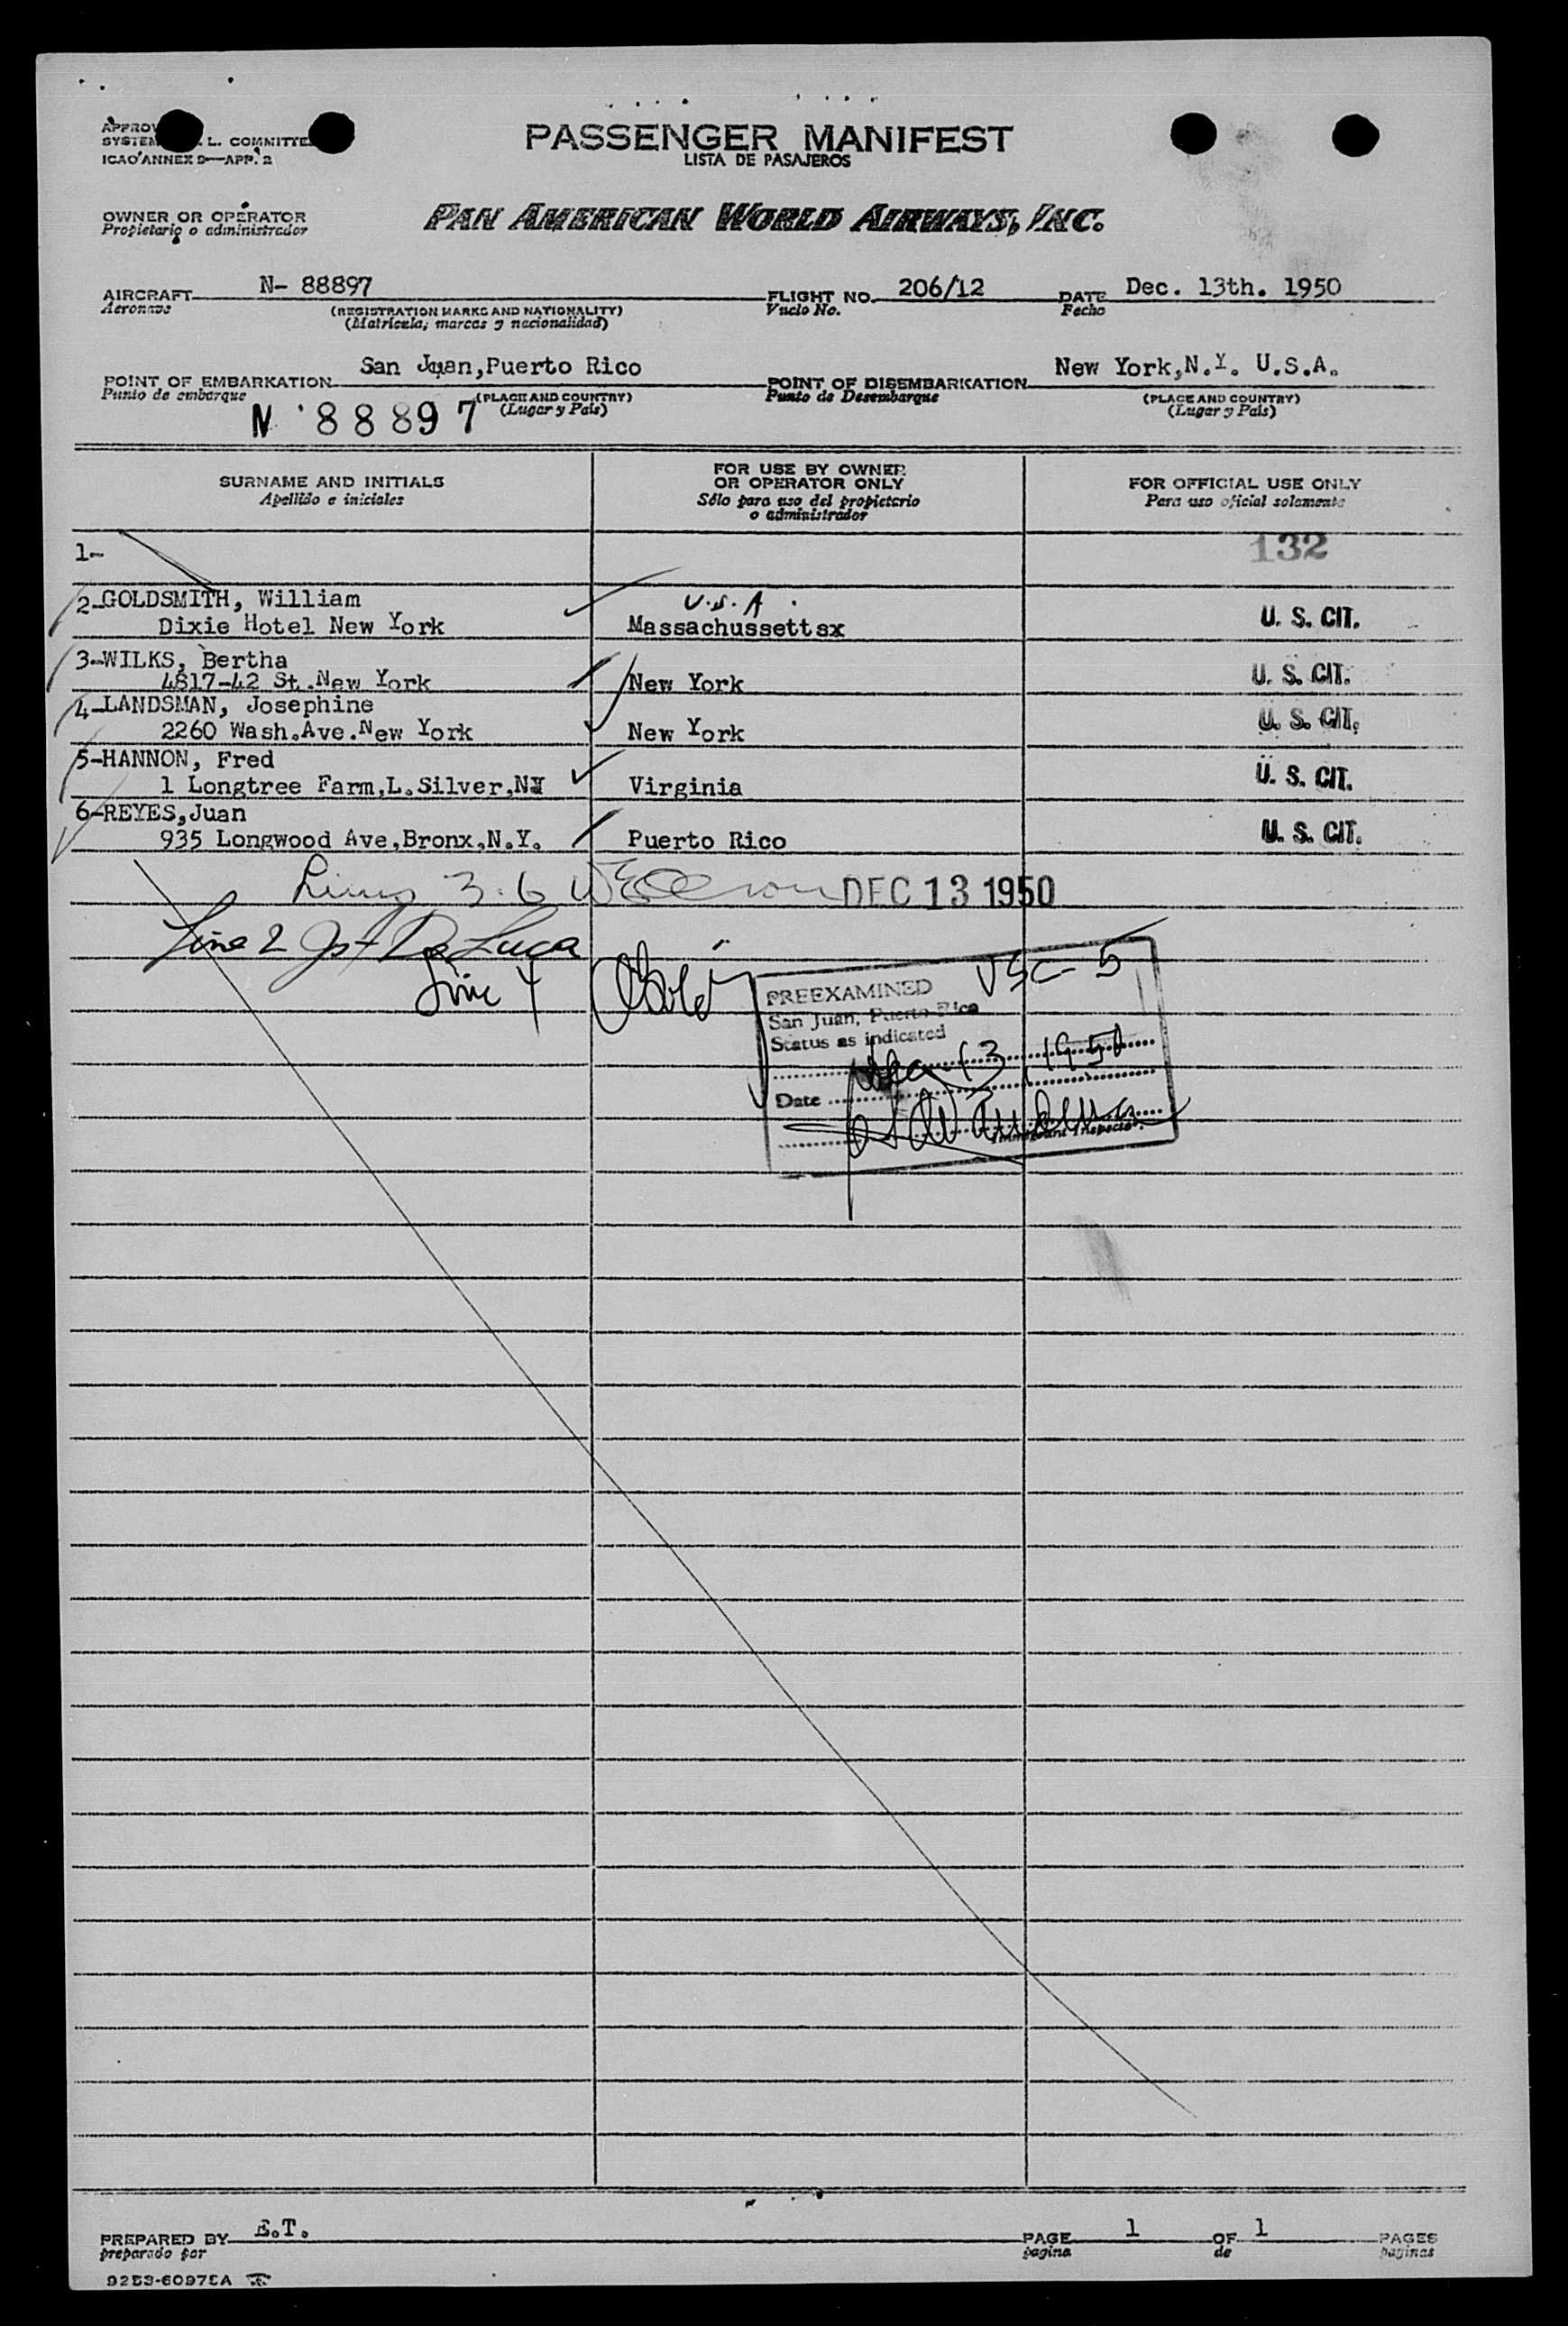 PASSENGER MANIFEST
LISTA DE PASAJEROS
SYSTEM L. COMMITTEE
ICAO ANNEX 9—APP. 2
OWNER OR OPERATOR
Propietario o administrador
PAN AMERICAN WORLD AIRWAYS, INC.
AIRCRAFT N- 88897 FLIGHT NO. 206/12 DATE Dec. 13th. 1950
Aeronave (REGISTRATION MARKS AND NATIONALITY) Vuelo No. Fecha
(Matrícula, marcas y nacionalidad)
POINT OF EMBARKATION San Juan,Puerto Rico POINT OF DISEMBARKATION New York,N.Y. U.S.A.
Punto de embarque (PLACE AND COUNTRY) Punto de Desembarque (PLACE AND COUNTRY)
(Lugar y País) (Lugar y País)
N 88897
SURNAME AND INITIALS FOR USE BY OWNER OR OPERATOR ONLY FOR OFFICIAL USE ONLY
Apellido e iniciales Sólo para uso del propietario o administrador Para uso oficial solamente
1- 132
2-GOLDSMITH, William U.S.A.
Dixie Hotel New York Massachussettsx U. S. CIT.
3-WILKS, Bertha
4817-42 St.New York New York U. S. CIT.
4-LANDSMAN, Josephine
2260 Wash.Ave.New York New York U. S. CIT.
5-HANNON, Fred
1 Longtree Farm,L.Silver,NY Virginia U. S. CIT.
6-REYES,Juan
935 Longwood Ave,Bronx,N.Y. Puerto Rico U. S. CIT.
Lines 3-6 DEC 13 1950
Line 2 De Luca
Line 4
USC-5
PREEXAMINED
San Juan, Puerto Rico
Status as indicated
Dec 13, 1950
Date
Immigrant Inspector.
PREPARED BY E.T. PAGE 1 OF 1 PAGES
preparado por pagina de paginas
9253-60975A